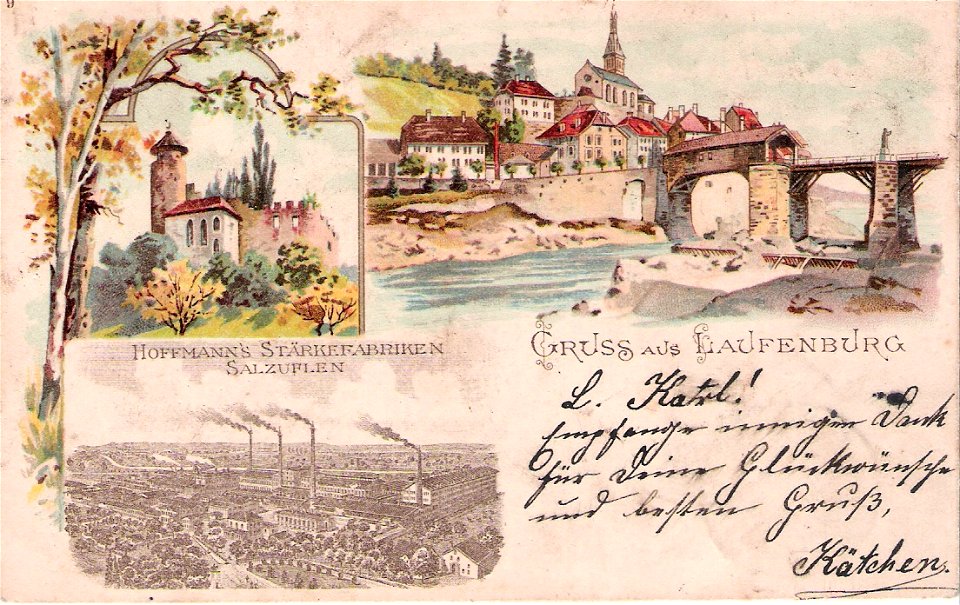 9
HOFFMANN'S STÄRKEFABRIKEN
SALZUFLEN
GRUSS AUS LAUFENBURG
L. Karl!
Empfange innigen Dank
für Deine Glückwünsche
und besten Gruß,
Kätchen.